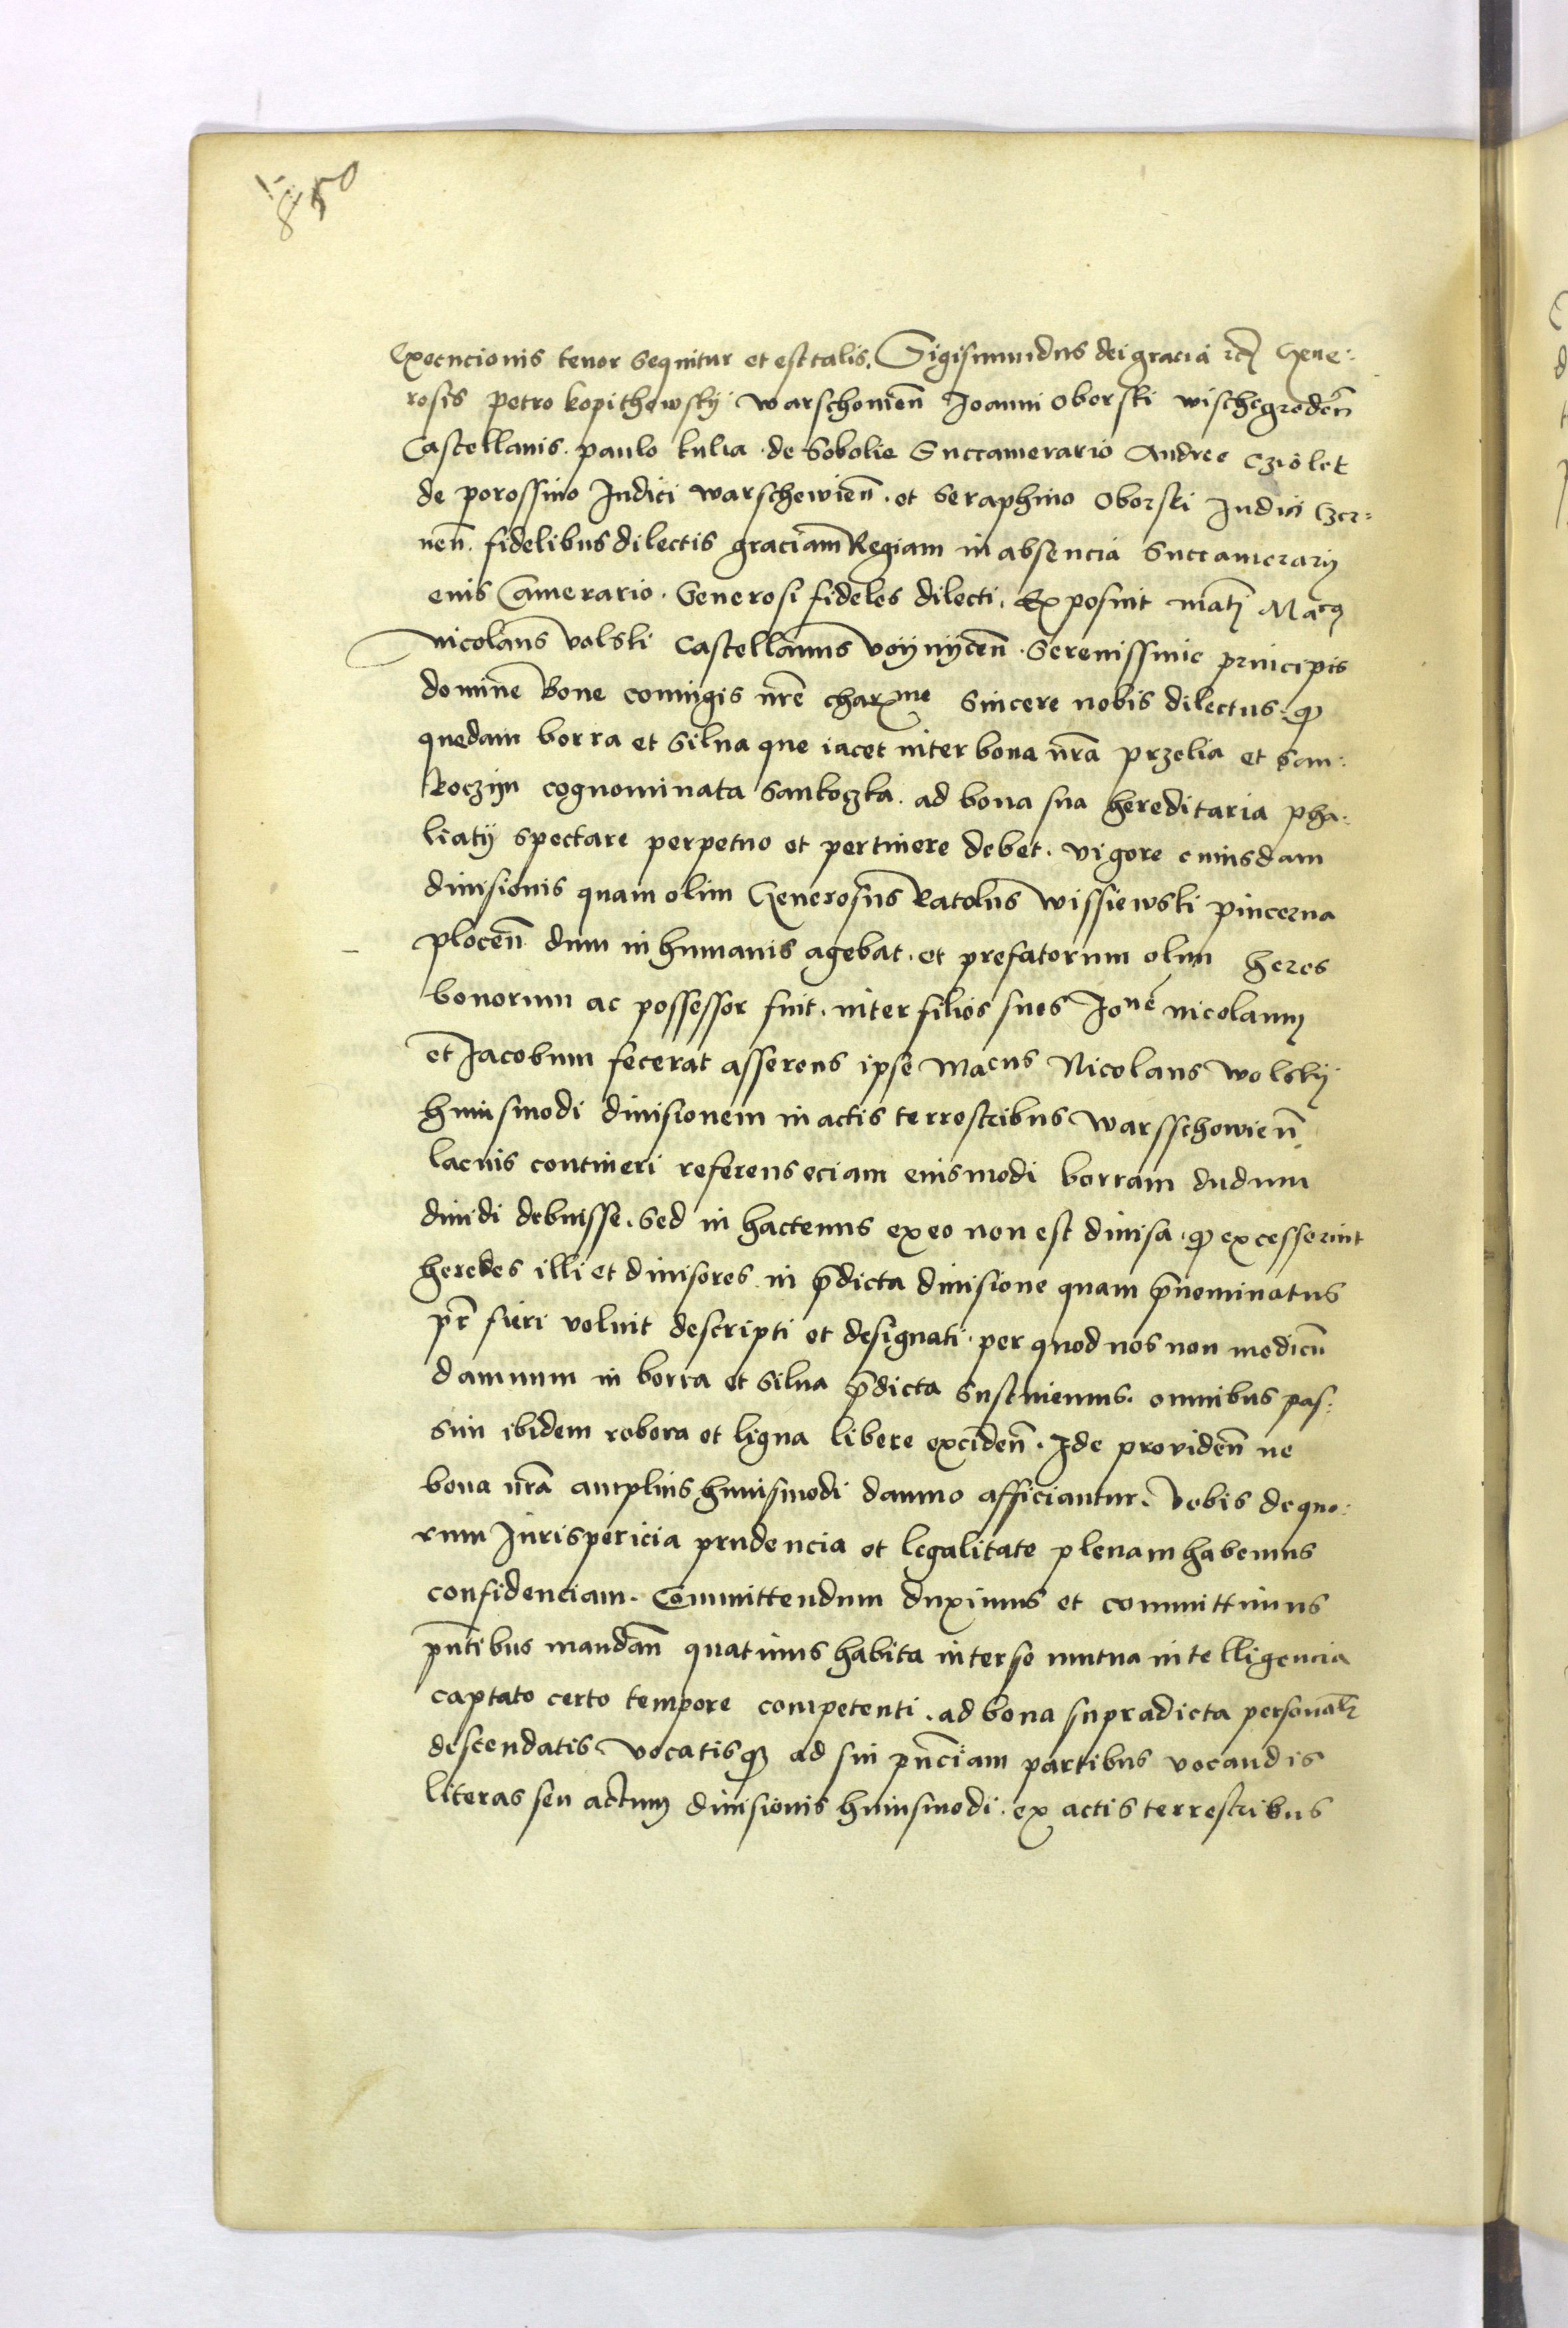 850
Execucionis tenor sequitur et est talis. Sigismundus dei gracia etc Gene:
rosis petro kopithowskÿ warschouieñ Joanni oborski wischegrodeñ
Castellanis. paulo kulia de Sobolie Succamerario Andree Cziolek
de porossino Judici warschewieñ. et Seraphino oborski Judici Czer:
neñ. fidelibus dilectis graciam Regiam in absencia Succamerarÿ
eius Camerario. Generosi fideles dilecti. Exposuit
Nicolaus volski Castellanus voÿnÿceñ. Serenissime principis
domine Bone coniugis nr̃e charme sincere nobis dilectus. q
quedam borra et silua que iacet inter bona nr̃a przelia et San:
koczÿn cognominata Sankoczka. ad bona sua hereditaria pha:
liatÿ spectare perpetuo et pertinere debet. vigore cuiusdam
diuisionis quam olim Generosus Ratolus wissiewski pincerna
ploceñ dum in humanis agebat. et prefatorum olim heres
bonorum ac possessor fuit. inter filios suos Jone nicolaum
et Jacobum fecerat asserens ipse Macus Nicolaus wolskÿ
huiusmodi diuisionem in actis terrestribus warsschowieñ.
lacius contineri referens eciam eiusmodi borram dudum
diuidi debuisse. sed in hactenus ex eo non est diuisa. q excesserint
heredes illi et diuisores in p̃dicta diuisione quam p̃nominatus
pr̃ fieri voluit descripti et designati. per quod nos non modicũ
damnum in borra et silua p̃dicta sustinemus. omnibus pas:
sim ibidem robora et ligna libere excideñ. Ide prouideñ ne
bona nr̃a amplius huiusmodi damno afficiantur. vobis de quo:
rum Jurispericia prudencia et legalitate plenam habemus
confidenciam. Committendum duximus et committimus
pñtibus mandañ quatinus habita inter se mutua intelligencia
captato certo tempore competenti. ad bona supradicta personalr
descendatis vocatisq ad sui pñciam partibus vocandis
literas seu actum diuisionis huiusmodi. ex actis terrestribus